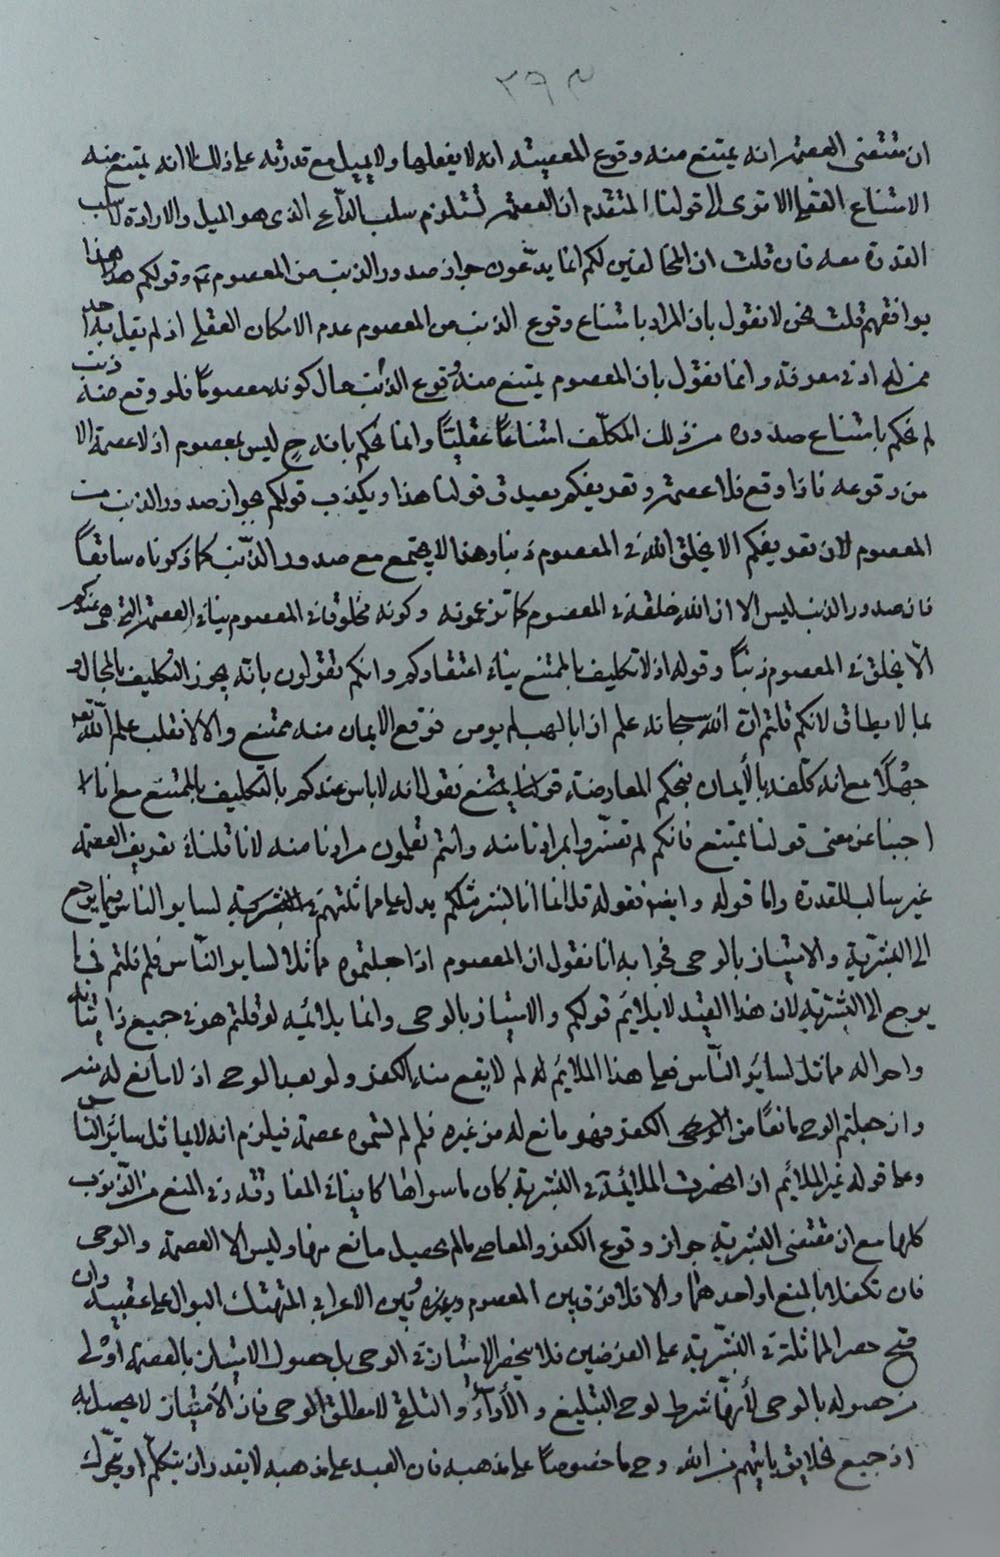 ٢٦٣
ان مقتضى العصمة انه يمتنع منه وقوع المعصية انه لا يفعلها ولا يميل مع قدرته على ذلك لا انه يمتنع منه
الامتناع العقلى الا ترى الى قولنا المتقدم ان العصمة تستلزم سلب الداعى الذى هو الميل والارادة لا سلب
القدرة معه فان قلت ان المخالفين لكم انما يدّعون جواز صدور الذنب من المعصوم وقولكم هذا
يوافقهم قلت نحن لا نقول بان المراد بامتناع وقوع الذنب من المعصوم عدم الامكان العقلى اذ لم يقل به احد
ممن له ادنى معرفة وانما نقول بان المعصوم يمتنع منه وقوع الذنب حال كونه معصوماً فلو وقع منه ذنب
لم نحكم بامتناع صدوره من ذلك المكلّف امتناعاً عقليّاً وانما نحكم بانه ح ليس بمعصوم اذ لا عصمة الا
من وقوعه فاذا وقع فلا عصمة وتعريفكم يصدق قولنا هذا ويكذب قولكم بجواز صدور الذنب من
المعصوم لان تعريفكم الا يخلق الله فى المعصوم ذنبا وهذا لا يجتمع مع صدور الذّنب كما ذكرناه سابقاً
فان صدور الذنب ليس الا ان الله خلقه فى المعصوم كما تزعمونه وكونه مخلوقا فى المعصوم ينافى العصمة التى هى عندكم
الّا يخلق فى المعصوم ذنباً وقوله اذ لا تكليف بالممتنع ينافى اعتقادكم وانكم تقولون بانّه يجوز التكليف بالمحال و
بما لا يطاق لانكم قلتم انّ الله سبحانه علم ان ابا لهب لم يؤمن فوقع الايمان منه ممتنع والا لانقلب علم الله تعالى
جهلاً مع انه كلّفه بالأيمان فبحكم المعارضة يمتنع نقول انه لا باس عندكم بالتكليف بالممتنع مع انا
اجبنا عن معنى قولنا يمتنع فانكم لم تفسّروا مرادنا منه وانتم تعلمون مرادنا منه لانا قلنا فى تعريف العصمة
غير سالب للقدرة واما قوله وايضا فقوله قل انما أنا بشر مثلكم يدل على مماثلتهم فى البشرية لساير الناس فيما يرجع
الى البشريّة والامتياز بالوحى فجوابه انا نقول ان المعصوم اذا جعلتموه مماثلا لساير النّاس فلم قلتم فيما
يرجع الى البشرية لان هذا القيد لا يلائم قولكم والامتياز بالوحى وانما يلائمه لو قلتم هو فى جميع ذاتياته
واحواله مماثل لسائر النّاس فعلى هذا الملائم له لم لا يقع منه الكفر ولو بعد الوحى اذ لا مانع له منه
وان جعلتم الوحى مانعاً من الكفر فهو مانع له من غيره فلم لم تسمّوه عصمة فيلزم انه لا يماثل سائر النّاس
وعلى قوله غير الملائم ان انحصرت الملائمة فى البشرية كان ما سواها كافيا فى المفارقة وفى المنع من الذّنوب
كلها مع ان مقتضى البشرية جواز وقوع الكفر والمعاصى ما لم يحصل مانع منها وليس الا العصمة والوحى
فان تكفلا بالمنع او احدهما والا فلا فرق بين المعصوم وغيره وبين الاعرابى المتهتك البوال على عقبيه وان
صح حصر المماثلة فى البشرية على الفرضين فلا ينحصر الامتياز فى الوحى بل حصول الامتياز بالعصمة أولى
من حصوله بالوحى لأنهّا شرط لوحى التبليغ والأداء والتلقى لا مطلق الوحى فان الأمتياز لا يحصل به
اذ جميع الخلايق ياتيهم من الله وحى ما خصوصاً على مذهبه فان العبد على مذهبه لا يقدر ان يتكلّم او يتحرّك